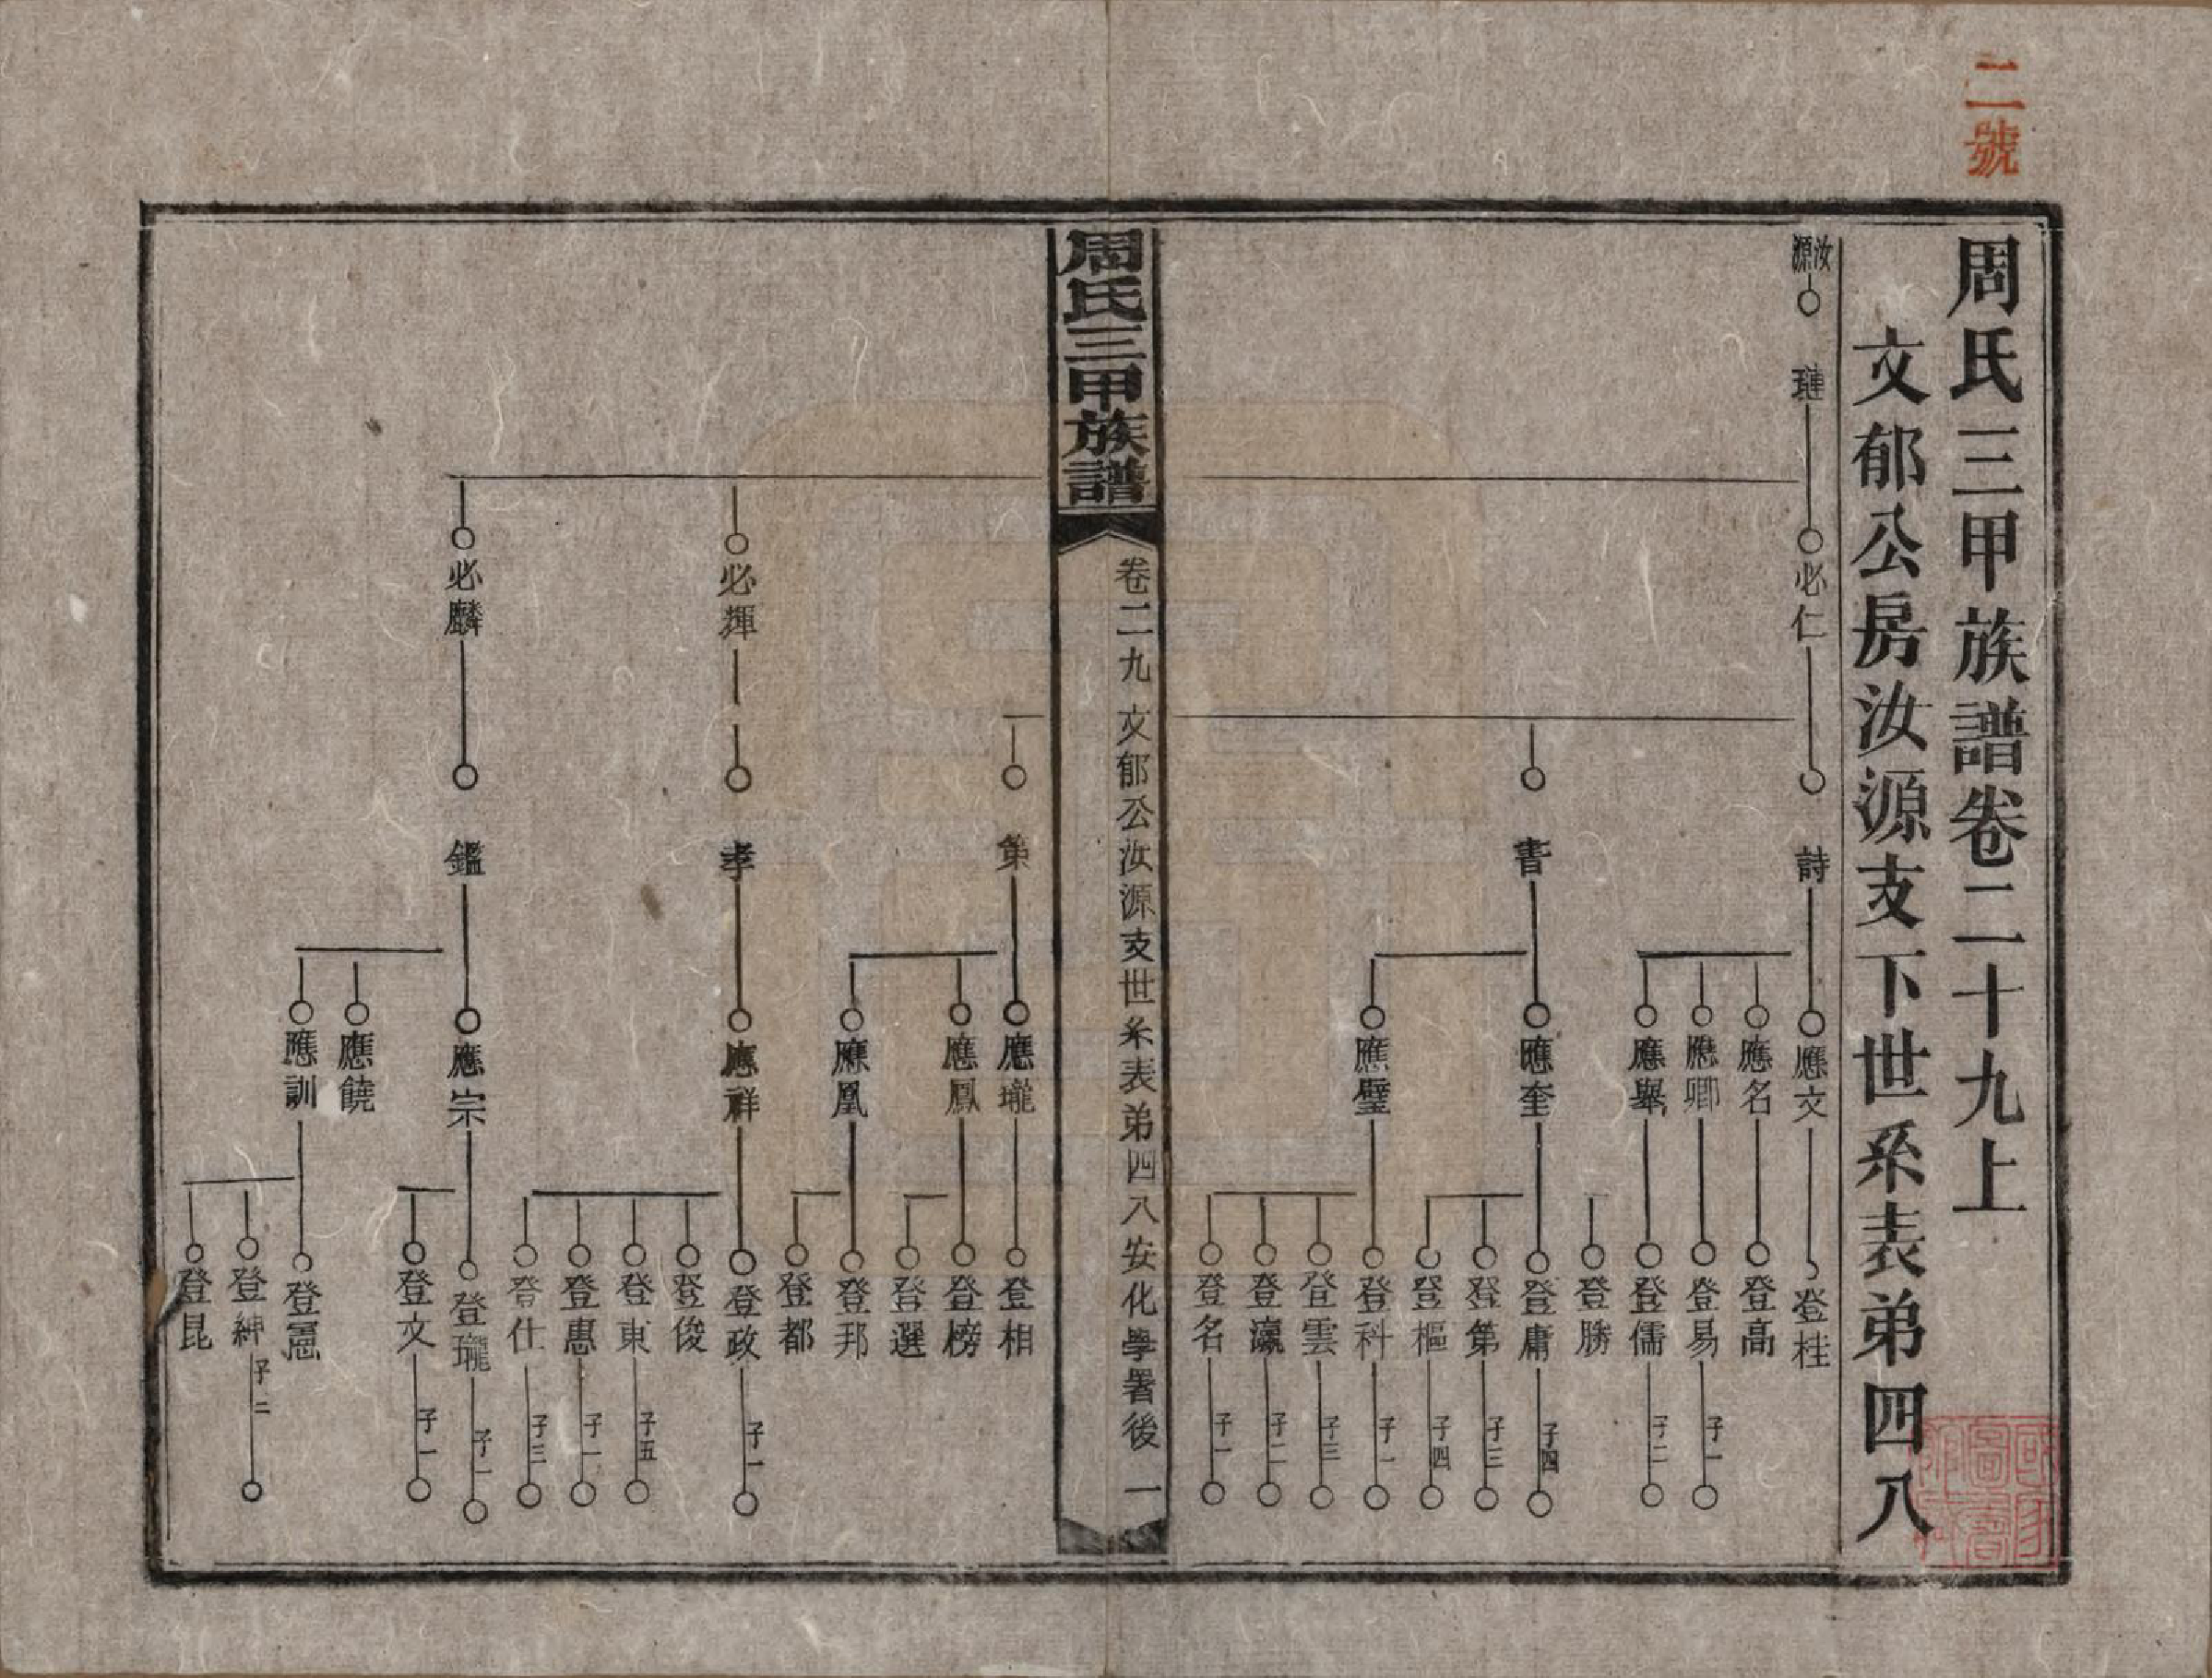 二號
周氏三甲族譜卷二十九上
文郁公房汝源支下世系表弟四八
汝源
璉
必仁
詩
應文
登桂
應名
登高
應卿
登易
子一
應舉
登儒
子二
登勝
書
應奎
登庸
子四
登第
子三
登樞
子四
應璧
登科
子一
登雲
子三
登瀛
子二
登名
子一
周氏三甲族譜
卷二九 文郁公汝源支世系表弟四八安化學署後 一
第
應瓏
登相
應鳳
登榜
登選
應凰
登邦
登都
必輝
孝
應祥
登政
子一
登俊
登東
子五
登惠
子一
登仕
子三
必麟
鑑
應宗
登瓏
子一
登文
子一
應饒
應訓
登憲
登紳
子二
登昆